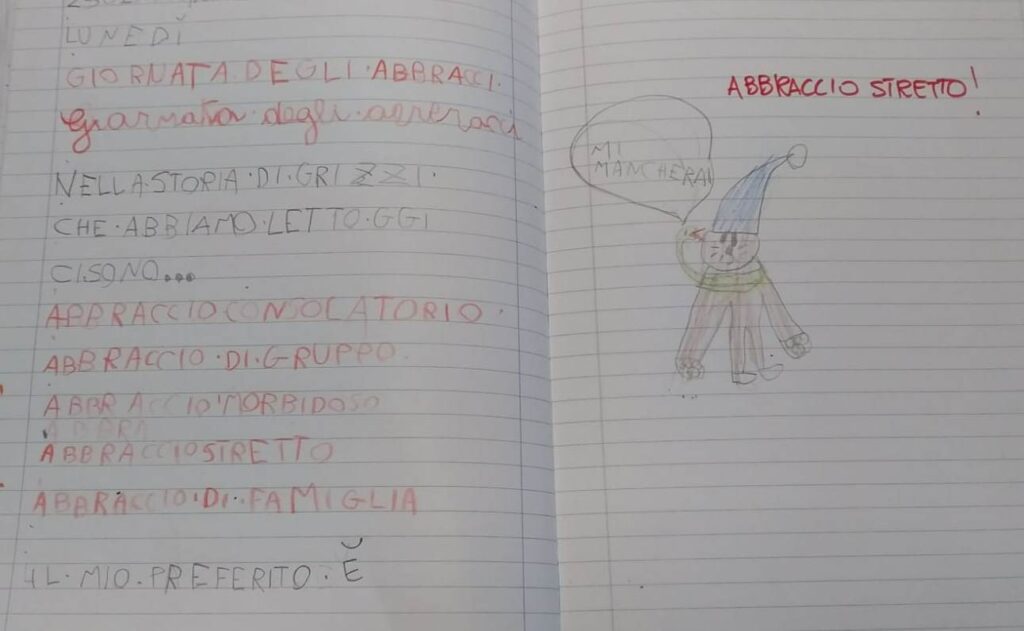 LUNEDÌ
GIORNATA DEGLI ABBRACCI.
NELLA·STORIA·DI·GRIZZI·
CHE·ABBIAMO·LETTO·GGI
CI.SONO...
ABBRACCIO CONSOLATORIO.
ABBRACCIO·DI·GRUPPO.
ABBRACCIO MORBIDOSO
ABBRA
ABBRACCIO STRETTO
ABBRACCIO·DI·FAMIGLIA
IL·MIO·PREFERITO·È
ABBRACCIO STRETTO!
MI
MANCHERAI